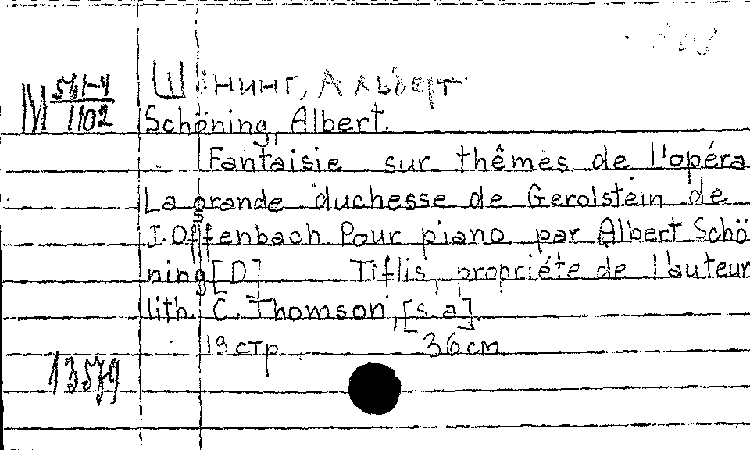 М 561-4
1102
Шёнинг, Альберт
Schöning, Albert.
Fantaisie sur thêmes de l'opéra
La grande duchesse de Gerolstein de
J. Offenbach. Pour piano par Albert Schö
ning [D] Tiflis, propriéte de l'auteur
lith. C. Thomson, [s.a]
19 стр. 36 см
13579